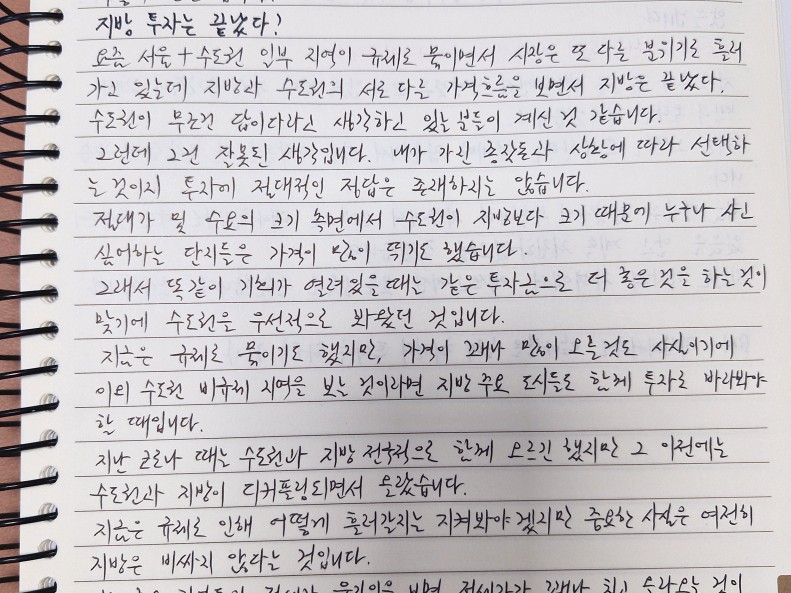 지방 투자는 끝났다!
요즘 서울+수도권 일부 지역이 규제로 묶이면서 시장은 또 다른 분위기로 흘러
가고 있는데 지방과 수도권의 서로 다른 가격흐름을 보면서 지방은 끝났다.
수도권이 무조건 답이다라고 생각하고 있는 분들이 계신 것 같습니다.
그런데 그건 잘못된 생각입니다. 내가 가진 종잣돈과 상황에 따라 선택하
는 것이지 투자에 절대적인 정답은 존재하지는 않습니다.
절대가 및 수요의 크기 측면에서 수도권이 지방보다 크기 때문에 누구나 사고
싶어하는 단지들은 가격이 많이 뛰기도 했습니다.
그래서 똑같이 기회가 열려있을 때는 같은 투자금으로 더 좋은 것을 하는 것이
맞기에 수도권을 우선적으로 봐왔던 것입니다.
지금은 규제로 묶이기도 했지만, 가격이 꽤나 많이 오른 것도 사실이기에
이외 수도권 비규제 지역을 보는 것이라면 지방 주요 도시들도 함께 투자로 바라봐야
할 때입니다.
지난 코로나 때는 수도권과 지방 전국적으로 함께 오르긴 했지만 그 이전에는
수도권과 지방이 디커플링되면서 올랐습니다.
지금은 규제로 인해 어떻게 흘러갈지는 지켜봐야겠지만 중요한 사실은 여전히
지방은 비싸지 않다는 것입니다.
움직임을 보면 전세가가 꽤나 치고 올라오는 것이